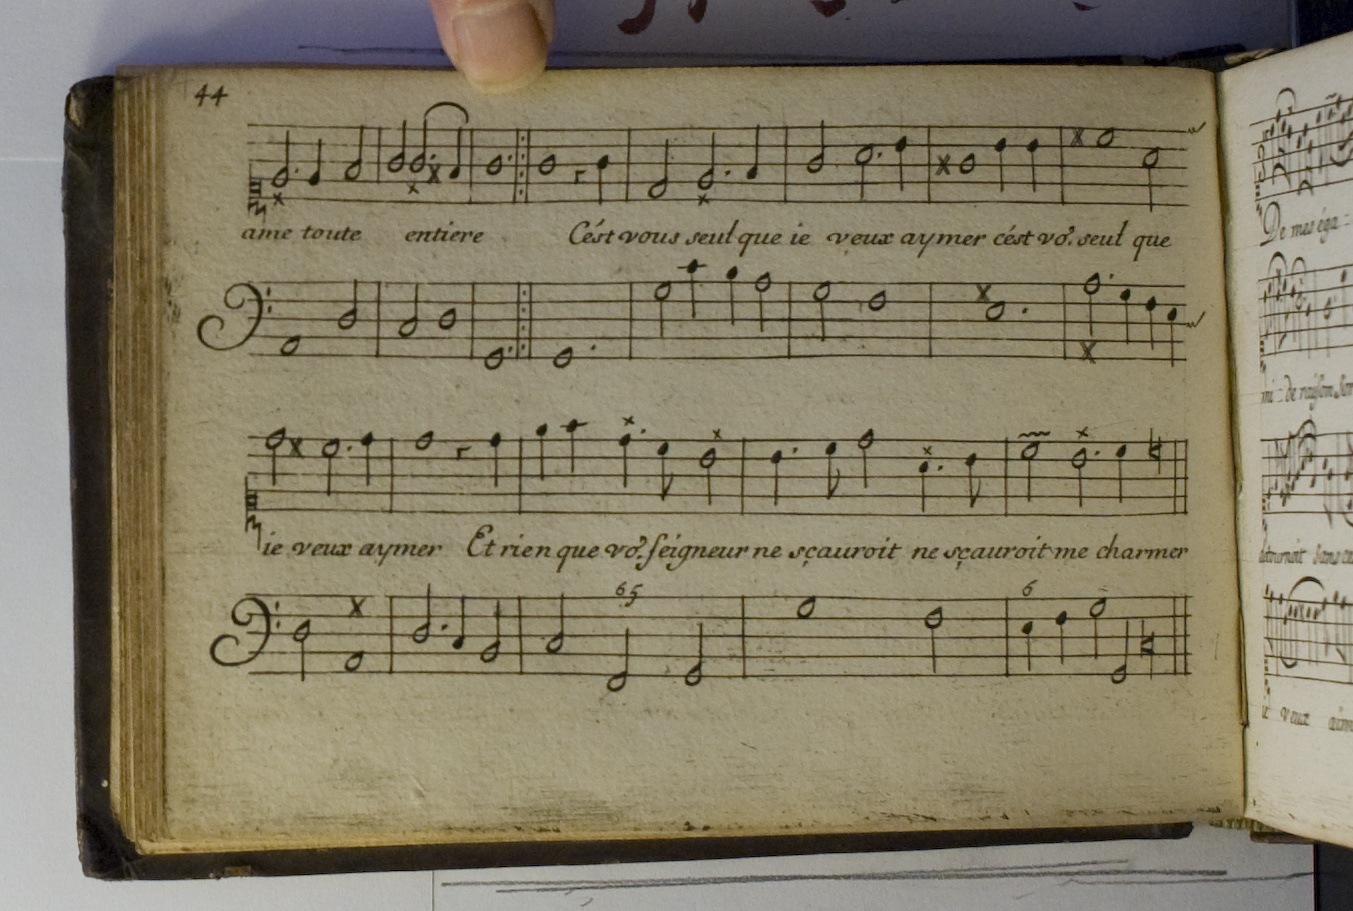 44
ame toute entiere Cést vous seul que ie veux aymer cést vo9. seul que
ie veux aymer Et rien que vo9. seigneur ne sçauroit ne sçauroit me charmer
65
6
De mes éga-
mi-de raison
veux